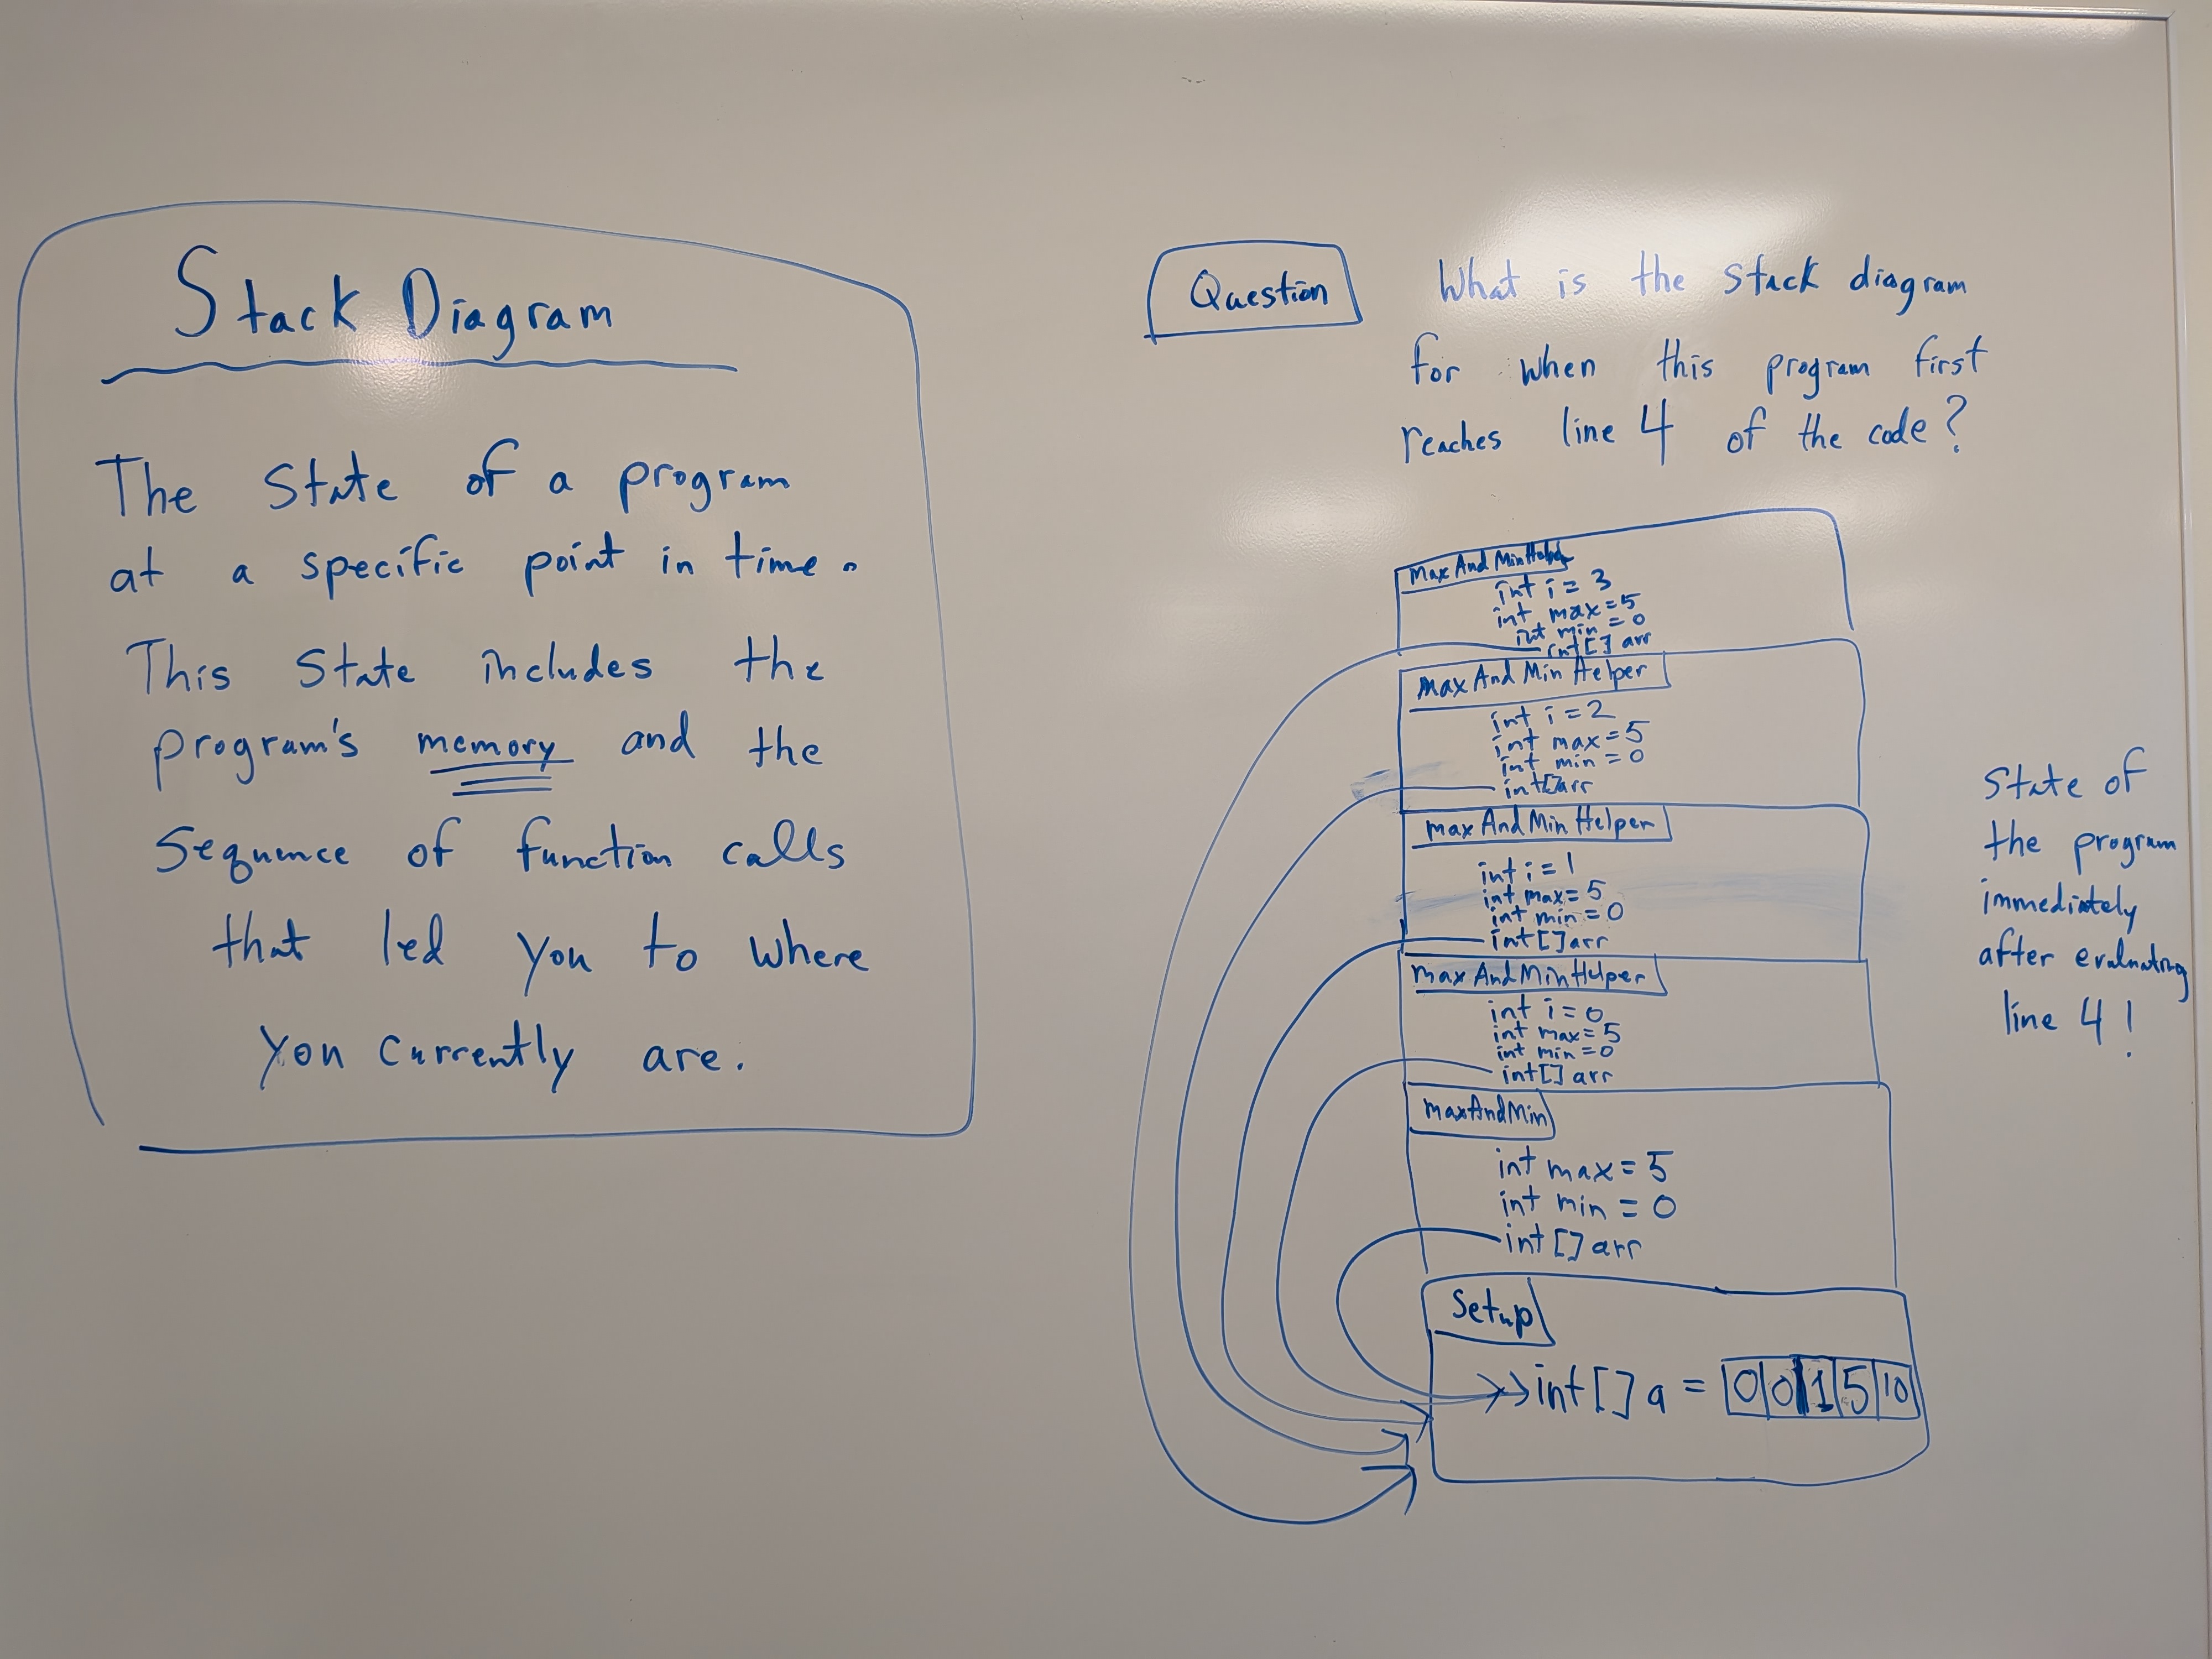 Stack Diagram
The State of a program
at a specific point in time.
This State includes the
program's memory and the
Sequence of function calls
that led you to where
you currently are.
Question
What is the stack diagram
for when this program first
reaches line 4 of the code?
maxAndMinHelper
int i = 3
int max = 5
int min = 0
int[] arr
maxAndMinHelper
int i = 2
int max = 5
int min = 0
int[] arr
maxAndMinHelper
int i = 1
int max = 5
int min = 0
int[] arr
maxAndMinHelper
int i = 0
int max = 5
int min = 0
int[] arr
maxAndMin
int max = 5
int min = 0
int[] arr
Setup
int[] a = 0 0 1 5 10
State of
the program
immediately
after evaluating
line 4!